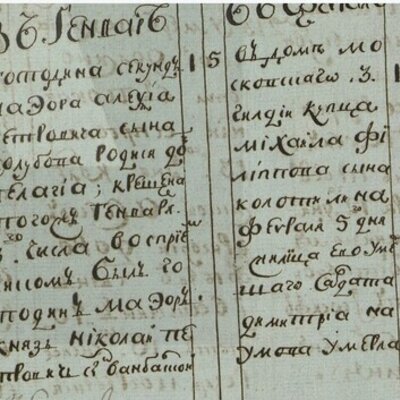 въ Генварѣ
господина секундъ
маэора алеѯіа
петровича сына
голубова родися до
пелагіа; крещена
тогожъ Генваря
числа восприе
никомъ былъ го
сподинъ маэоръ
князь ніколай пе
тровичъ
1 5
въ домѣ мо
сковшаго 3
гилдіи купца
міхаила фі
ліппова сына
колоти на
февраля 5 дня
его уме
шаго салдата
димитріа на
умова умерла